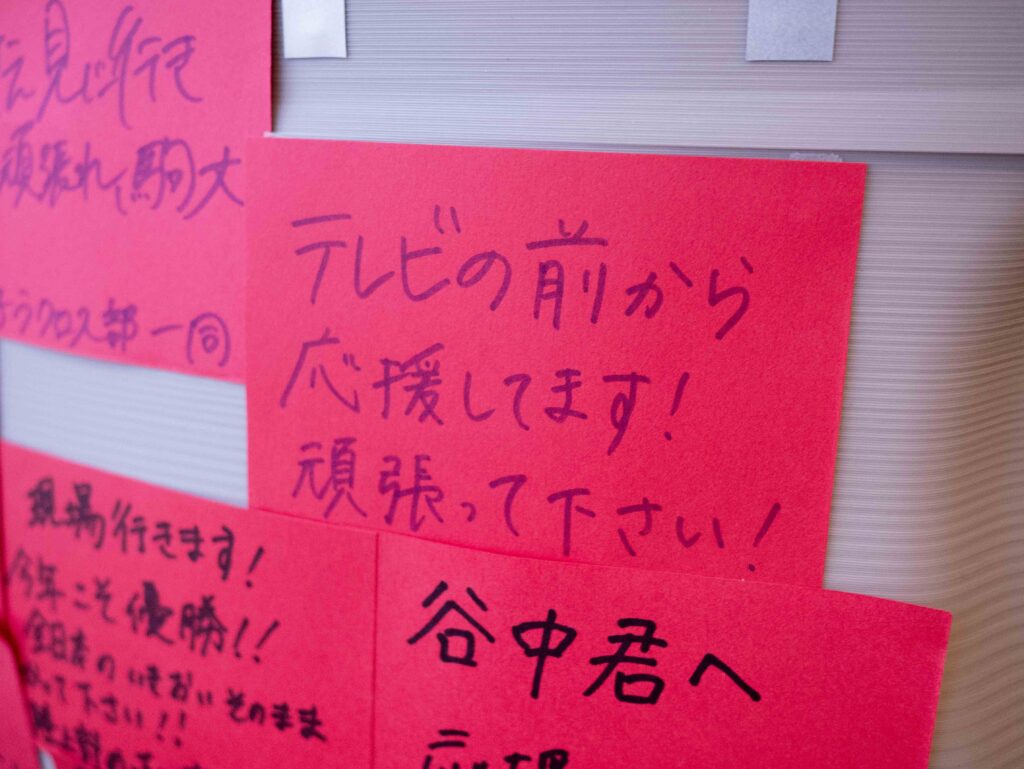 見に行き
頑張れ、駒大
ラクロス部一同
テレビの前から
応援してます!
頑張って下さい!
現場行きます!
今年こそ優勝!!
全日本のいきおいそのまま
って下さい!!
谷中君へ